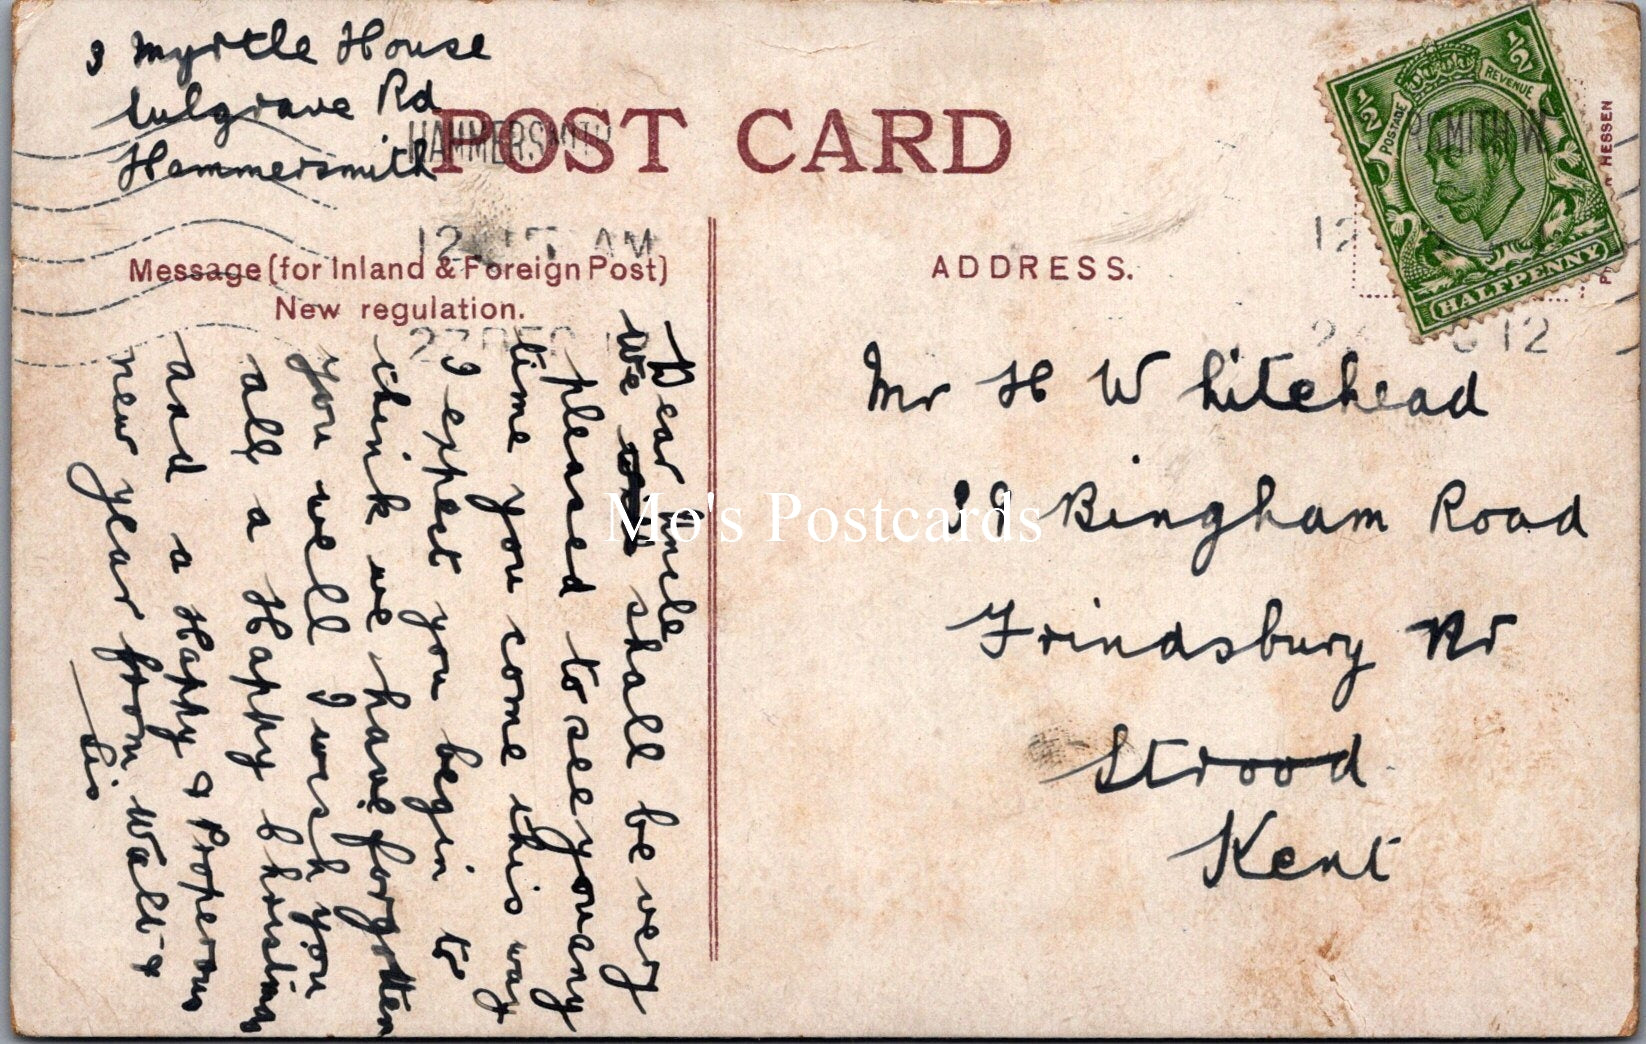 3 Myrtle House
Sulgrave Rd
Hammersmith
POST CARD
HAMMERSMITH
12.15 AM
Message (for Inland & Foreign Post)
New regulation.
ADDRESS.
POSTAGE
REVENUE
1/2
1/2
HALFPENNY
HESSEN
Dear Uncle
We shall be very
pleased to see you any
time you come this way
I expect you begin to
think we have forgotten
you well I wish you
all a Happy Christmas
and a Happy & Properous
new year from Walt &
Lis
Mr H Whitehead
Bingham Road
Frindsbury Nr
Strood
Kent
Mo's Postcards